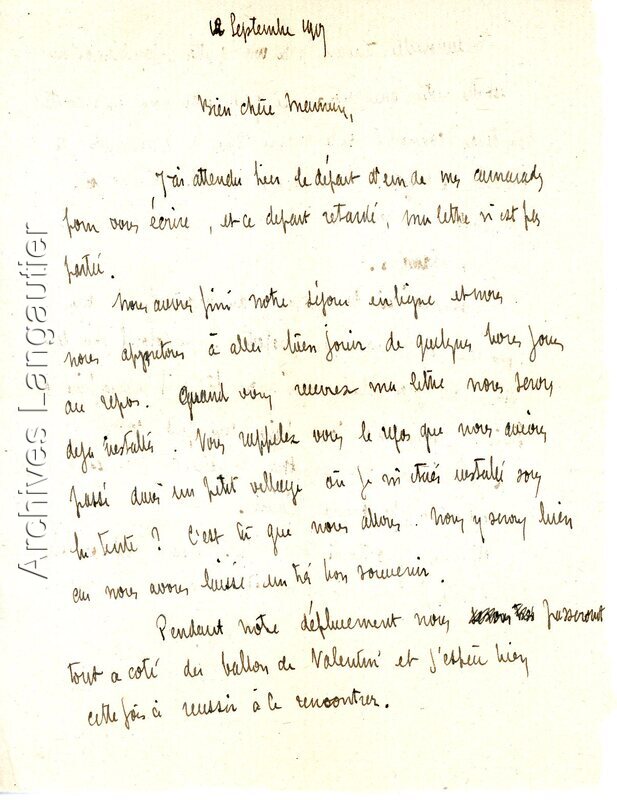 12 Septembre 1917
Bien chère Maman,
J'ai attendu hier le départ d'un de mes camarades
pour vous écrire, et ce départ retardé, ma lettre n'est pas
partie.
Nous avons fini notre séjour en ligne et nous
nous apprêtons à aller bien jouir de quelques bons jours
au repos. Quand vous recevrez ma lettre nous serons
deja installés. Vous rappelez vous le repos que nous avions
passé dans un petit village où je m'étais installé sous
la tente ? C'est là que nous allons. Nous y serons bien
car nous avons laissé un très bon souvenir.
Pendant notre déplacement nous passerons
tout a coté du ballon de Valentin et j'espère bien
cette fois ci reussir à le rencontrer.
Archives Langautier